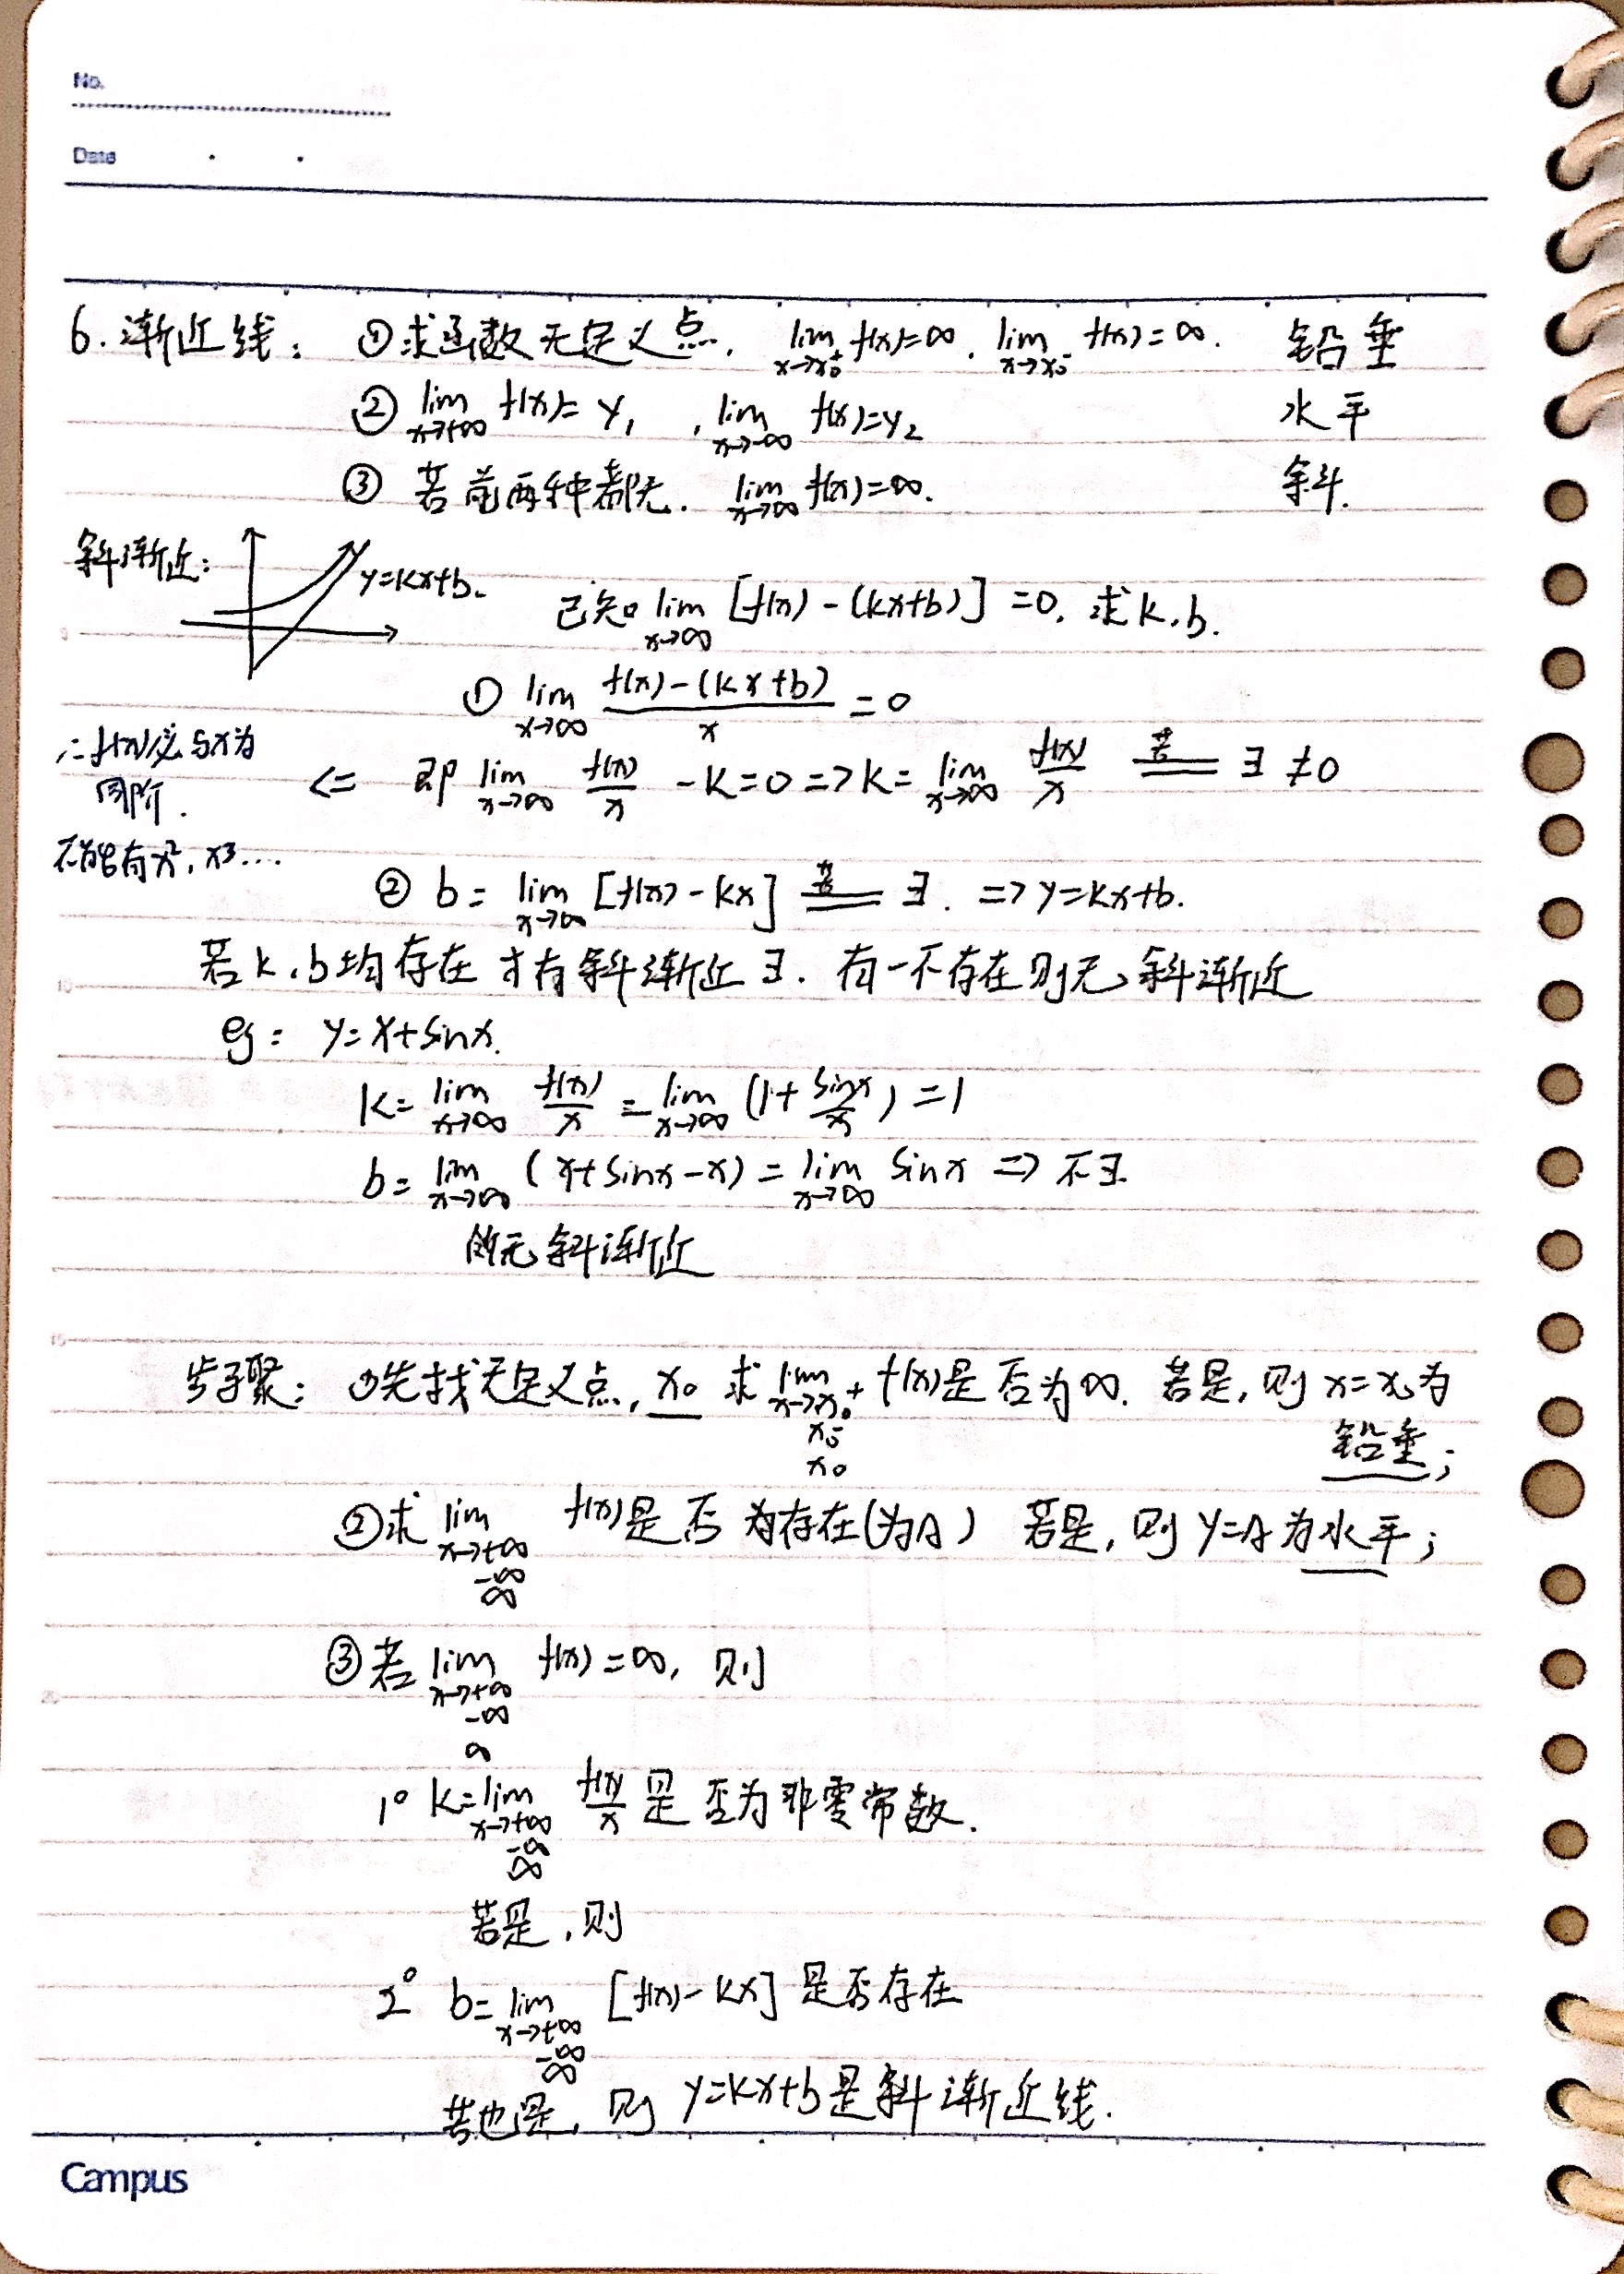 No.
Date
6. 渐近线: ①求函数无定义点, lim x→x₀⁺ f(x)=∞, lim x→x₀⁻ f(x)=∞. 铅垂
② lim x→+∞ f(x)=y₁, lim x→-∞ f(x)=y₂ 水平
③ 若前两种都无. lim x→∞ f(x)=∞. 斜.
斜渐近: y=kx+b.
已知 lim x→∞ [f(x)-(kx+b)]=0, 求k,b.
① lim x→∞ (f(x)-(kx+b))/x =0
∴f(x)必与x为同阶.
不能有x²,x³....
<= 即 lim x→∞ f(x)/x -k=0 => k= lim x→∞ f(x)/x 若== ∃ ≠0
② b= lim x→∞ [f(x)-kx] 若== ∃. => y=kx+b.
若k,b均存在才有斜渐近∃. 有一不存在则无斜渐近
eg: y=x+sinx.
k= lim x→∞ f(x)/x = lim x→∞ (1+ sinx/x) =1
b= lim x→∞ (x+sinx-x) = lim x→∞ sinx => 不∃
故无斜渐近
步骤: ①先找无定义点, x₀ 求 lim x→x₀⁺ x₀⁻ x₀ f(x)是否为∞. 若是, 则x=x₀为
铅垂;
②求 lim x→+∞ -∞ ∞ f(x)是否为存在(为A) 若是, 则y=A为水平;
③若 lim x→+∞ -∞ ∞ f(x)=∞, 则
1° k= lim x→+∞ -∞ ∞ f(x)/x 是否为非零常数.
若是, 则
2° b= lim x→+∞ -∞ ∞ [f(x)-kx] 是否存在
若也是, 则 y=kx+b是斜渐近线.
Campus